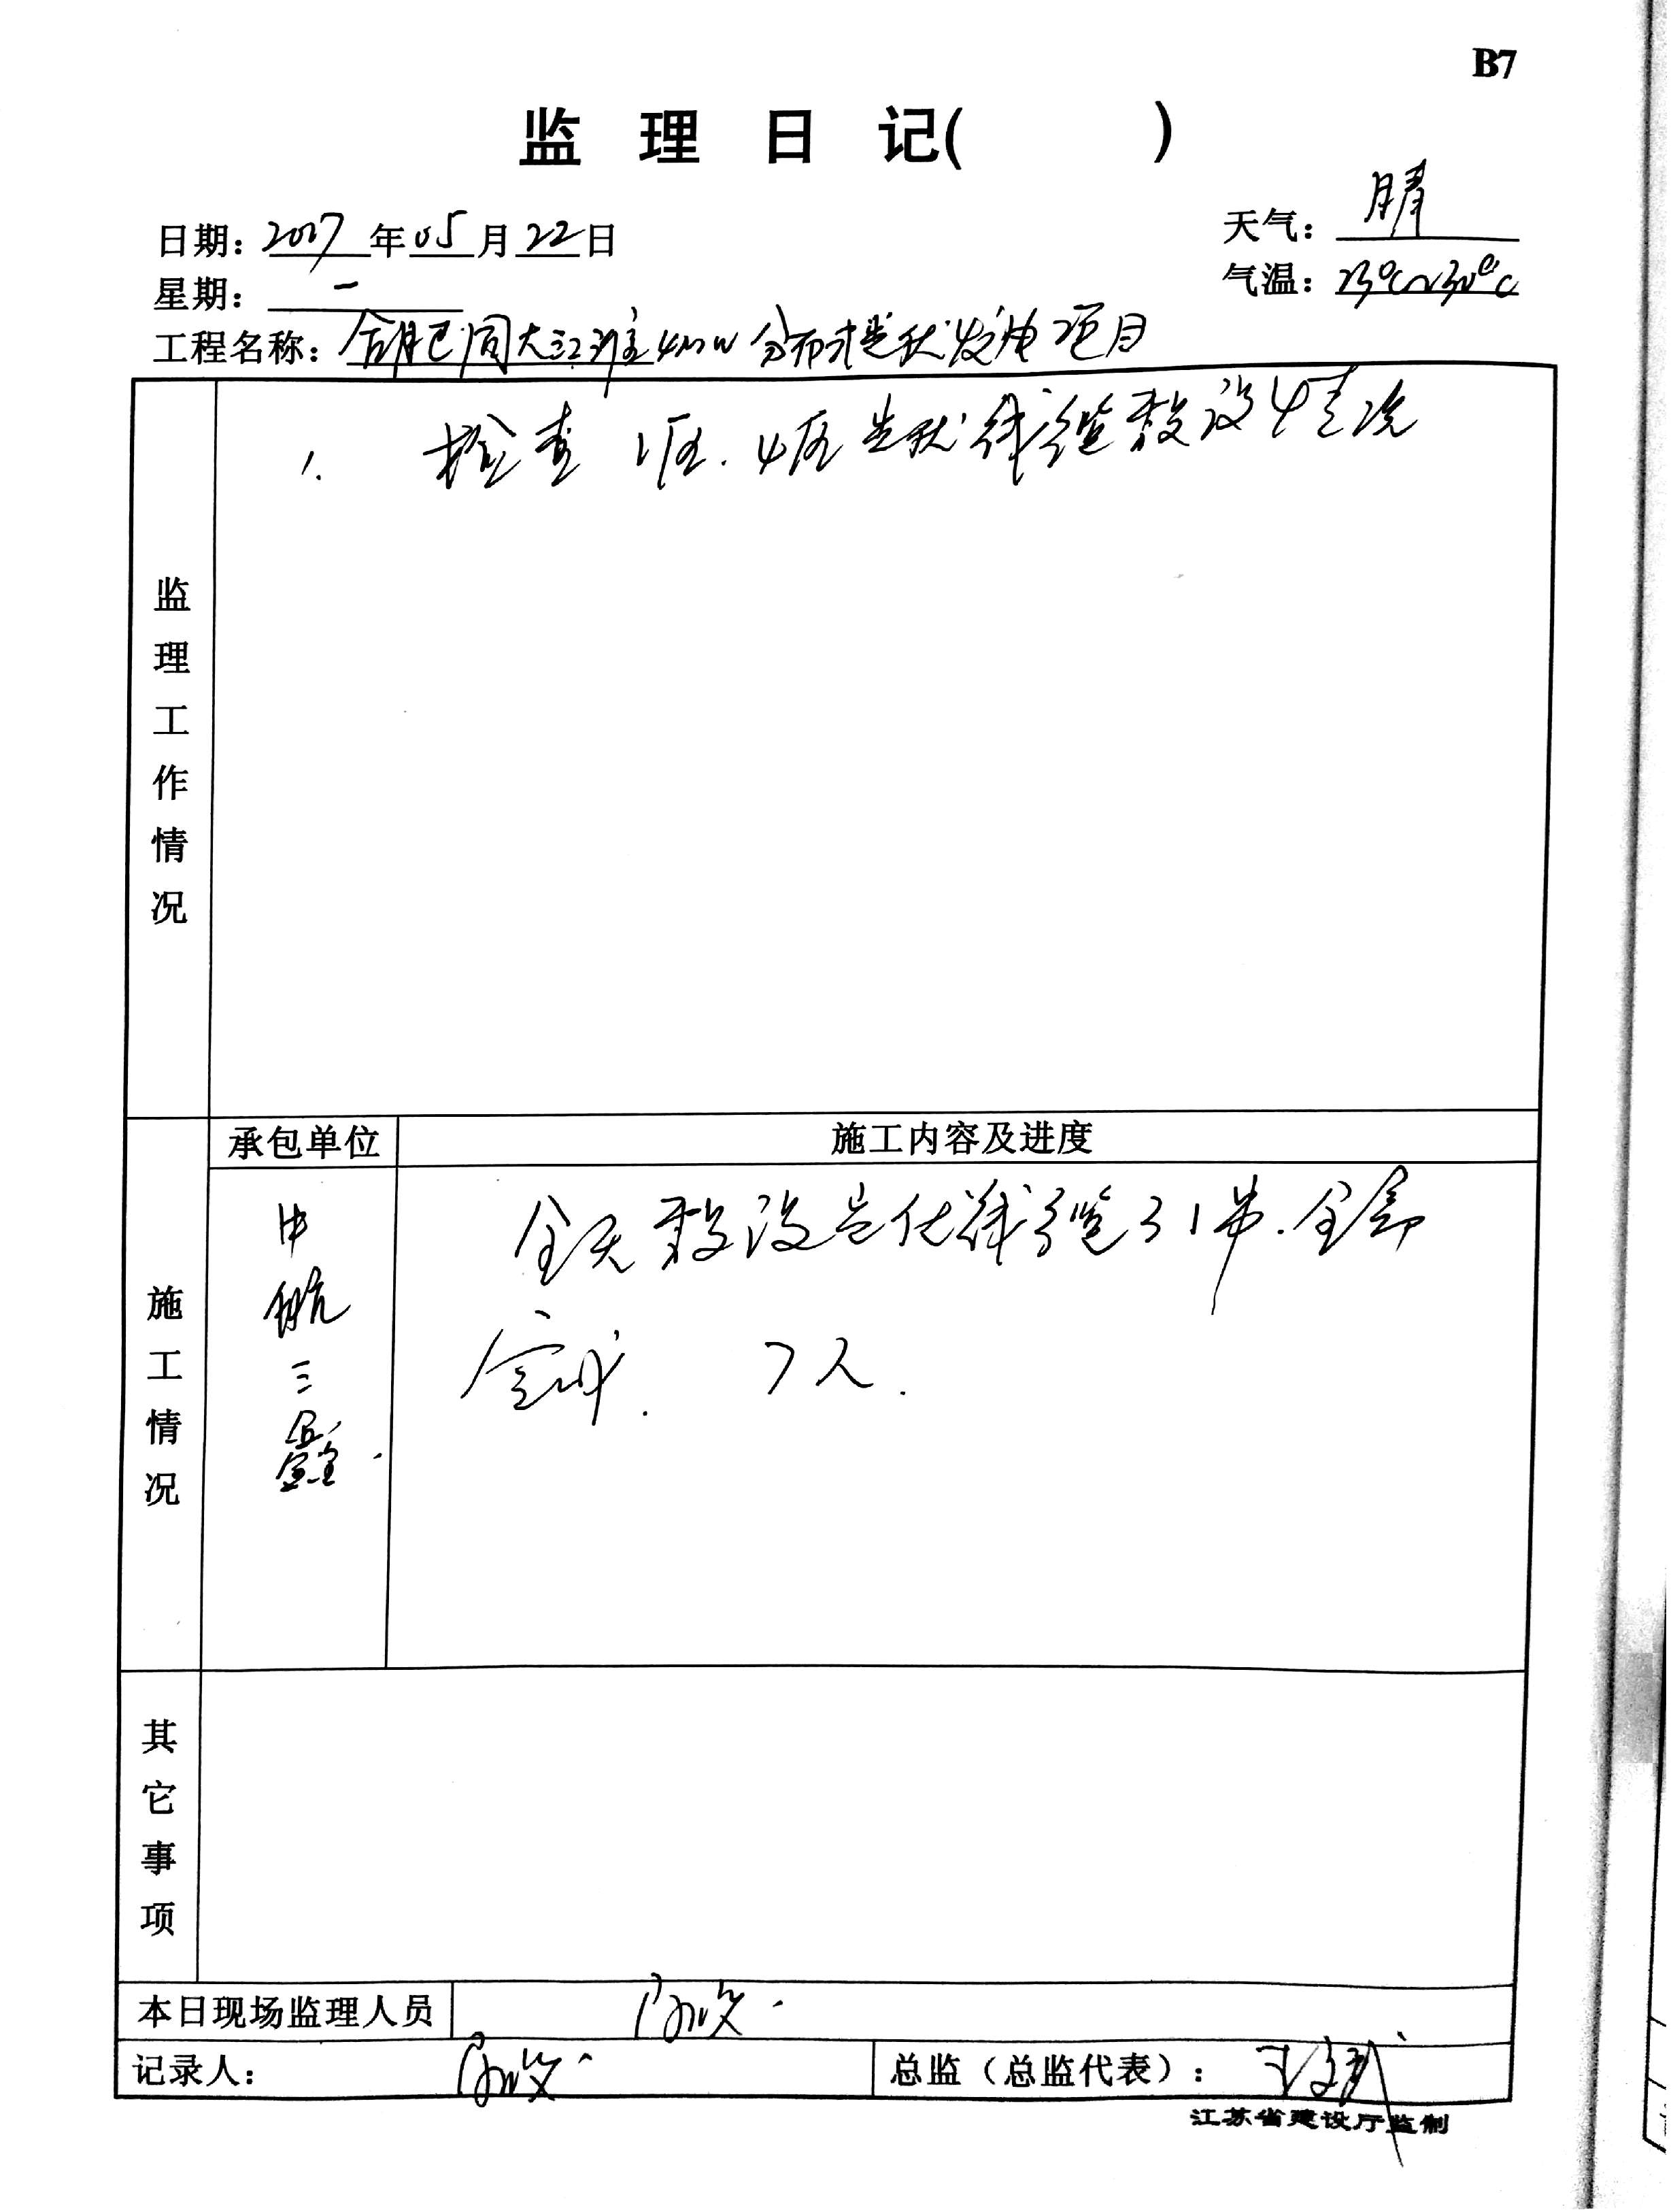 B7
监 理 日 记( )
日期: 2017 年 05 月 22 日
天气: 晴
星期: 一
气温: 23℃~30℃
工程名称: 大江 4MW 分布式光伏发电项目
1. 检查1区.4区光伏线缆敷设情况
监理工作情况
承包单位 施工内容及进度
施工情况
中航三鑫.
全天敷设光伏线缆31串.全部
完成. 7人.
其它事项
本日现场监理人员
记录人:
总监(总监代表):
江苏省建设厅监制